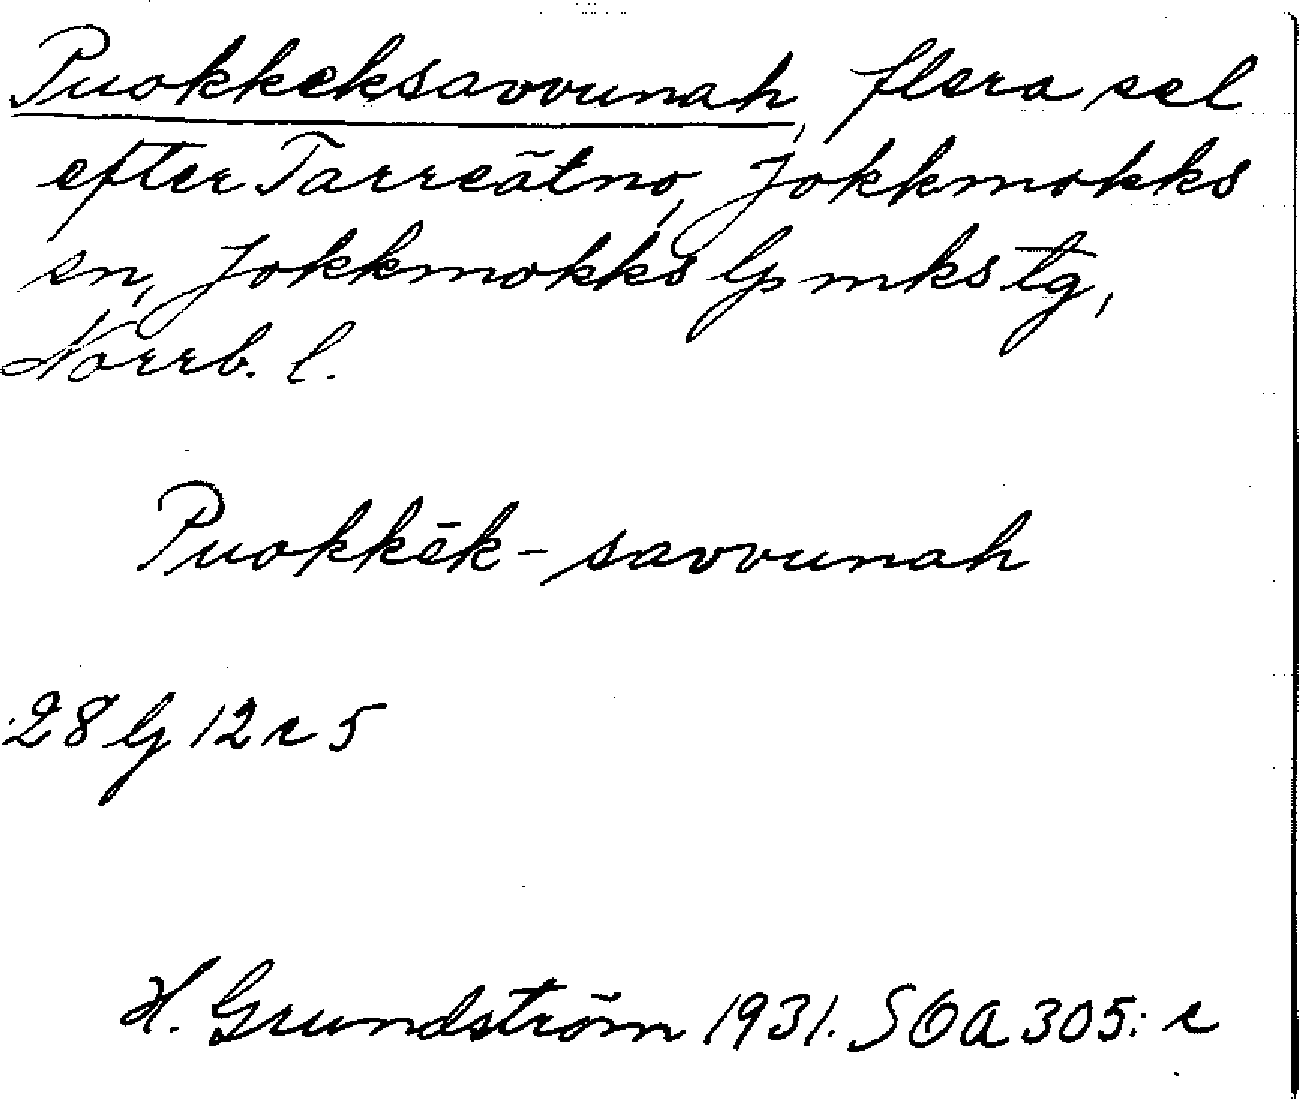 Puokkeksavvunah, flera sel
efter Tarreätno, Jokkmokks
sn, Jokkmokks lpmkstg,
Norrb. l.
Puokkēk-savvunah
28 G 12 c 5
H. Grundström 1931. SOA 305: c